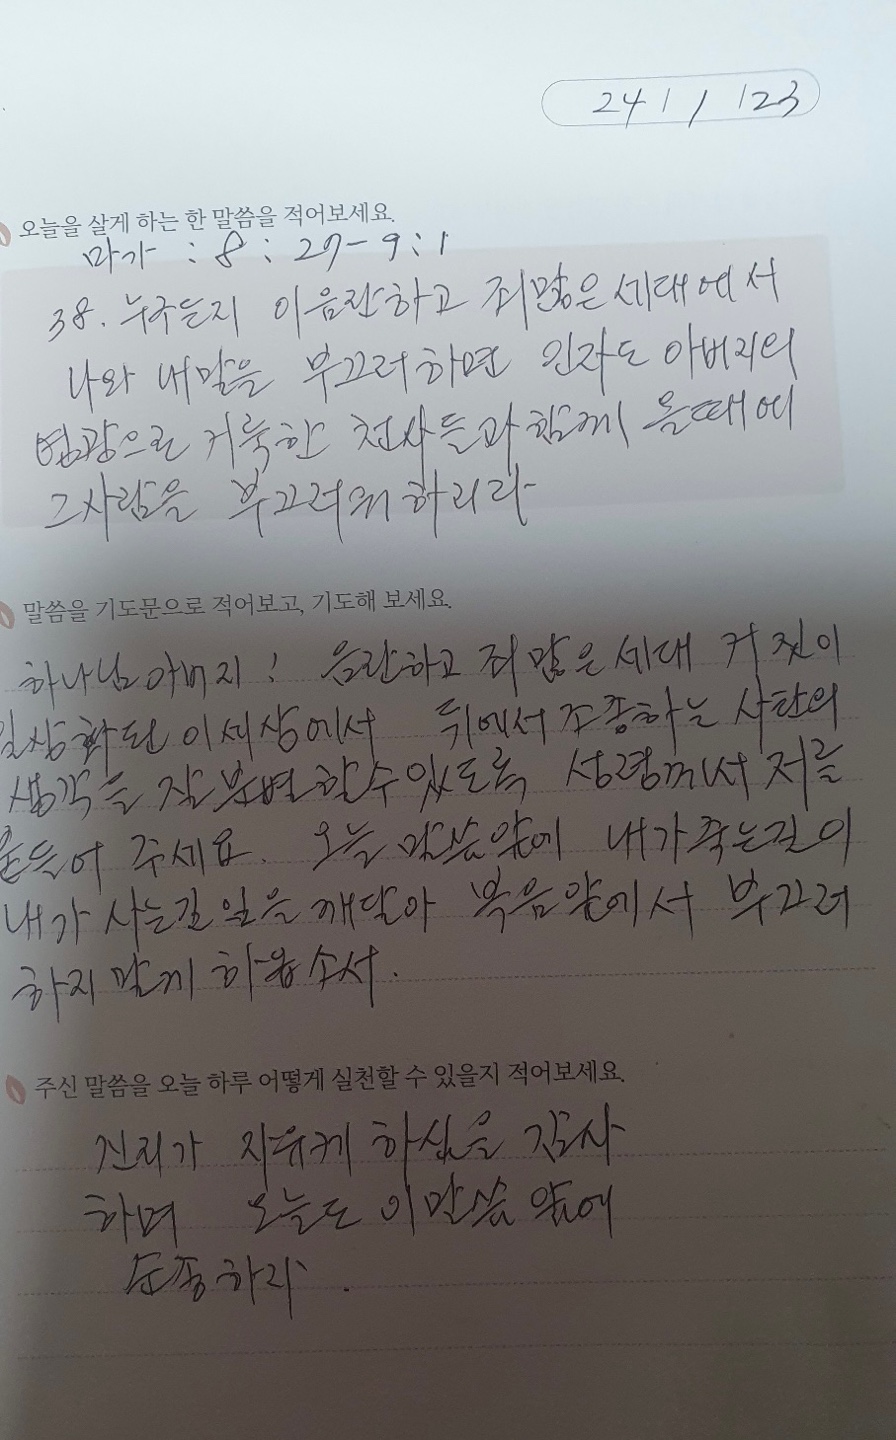 241 / 123
오늘을 살게 하는 한 말씀을 적어보세요.
마가 : 8 : 27-9:1
38. 누구든지 이음란하고 죄많은 세대에서
나와 내말을 부끄러하면 인자도 아버지의
영광으로 거룩한 천사들과 함께 올때에
그사람을 부끄러워하리라
말씀을 기도문으로 적어보고, 기도해 보세요.
하나님아버지! 음란하고 죄많은 세대 거짓이
일상화된 이세상에서 뒤에서 조종하는 사탄의
생각을 잘 분변할수있도록 성령께서 저를
붙들어 주세요. 오늘 말씀앞에 내가죽는길이
내가 사는길임을 깨달아 복음앞에서 부끄러
하지말게 하옵소서.
주신 말씀을 오늘 하루 어떻게 실천할 수 있을지 적어보세요.
진리가 자유케 하심을 감사
하며 오늘도 이말씀 앞에
순종하라.